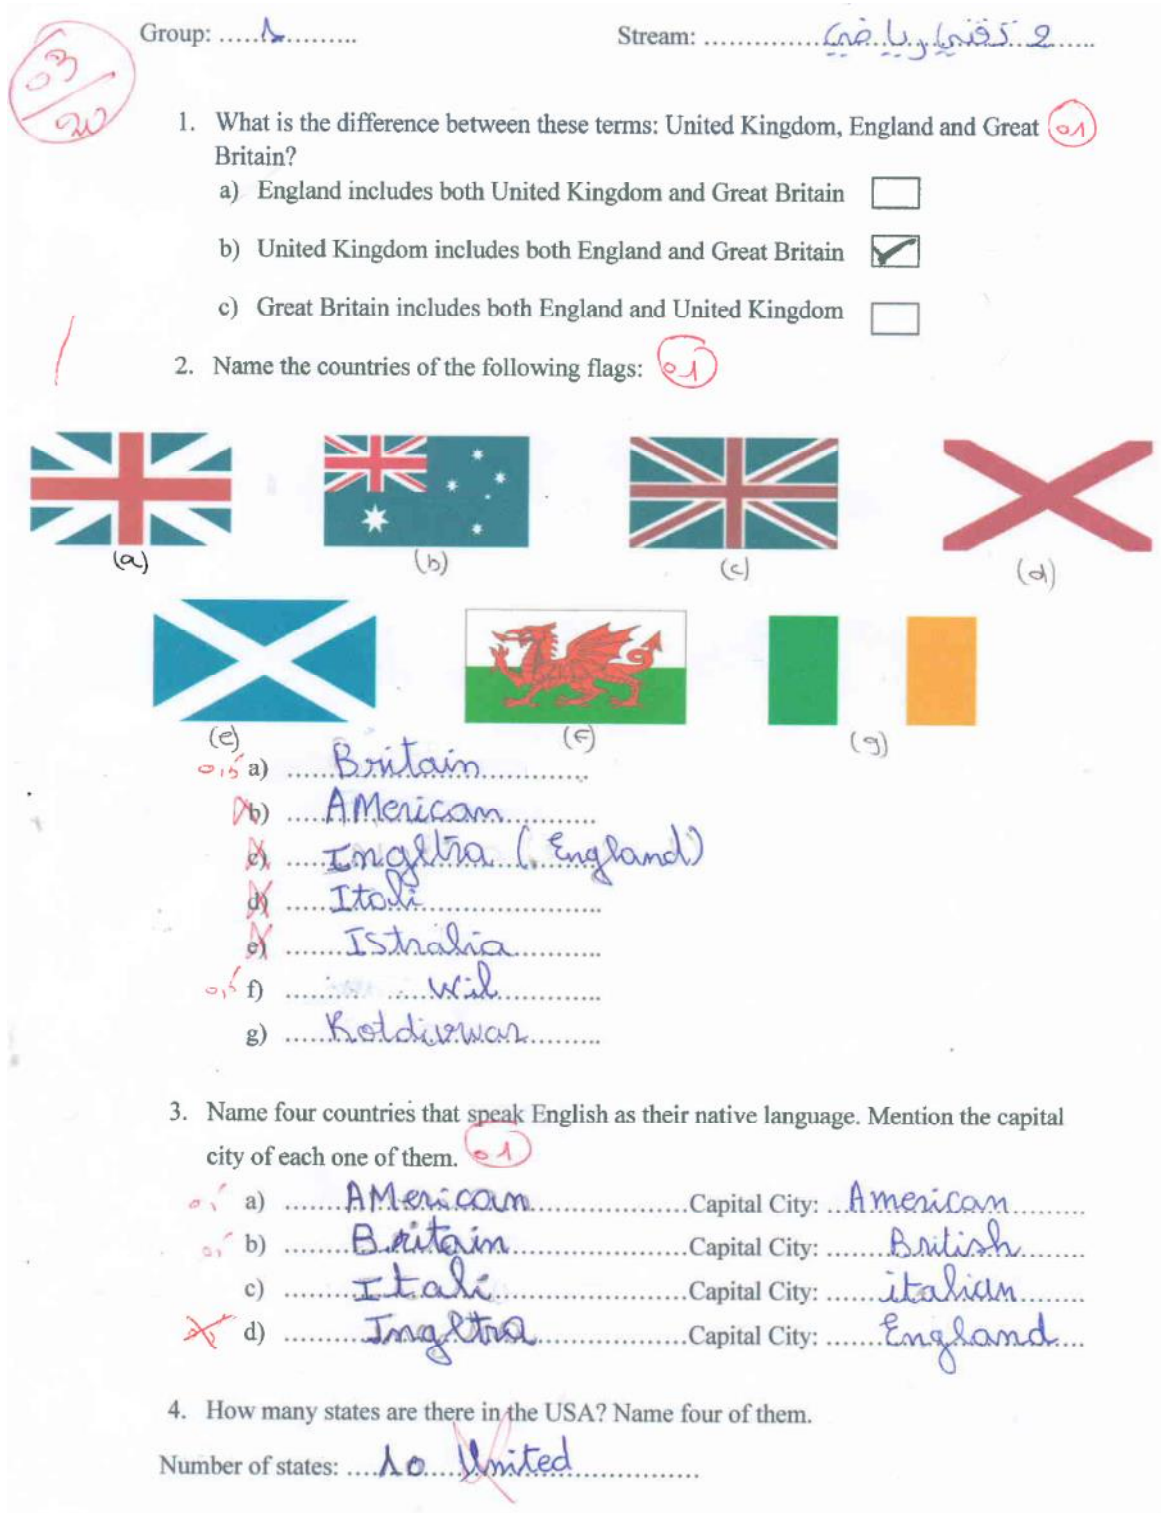 Group: .....1.........
Stream: ..............2 تقني رياضي.....
03/20
1. What is the difference between these terms: United Kingdom, England and Great 01
Britain?
a) England includes both United Kingdom and Great Britain
b) United Kingdom includes both England and Great Britain ✓
c) Great Britain includes both England and United Kingdom
2. Name the countries of the following flags: 01
(a) (b) (c) (d)
(e) (f) (g)
0,5 a) ......Britain..............
b) ....AMerican............
c) ....Ingeltra (England)
d) .....Itali......................
e) .......Istralia............
0,5 f) ..............Wil..............
g) .....Kotdivwar.........
3. Name four countries that speak English as their native language. Mention the capital
city of each one of them. 01
a) .......AMerican....................Capital City: ...American.........
b) .........Britain......................Capital City: .......British........
c) .........Itali........................Capital City: ......italian........
d) .........Ingeltra...................Capital City: .......England....
4. How many states are there in the USA? Name four of them.
Number of states: ....10....United...............